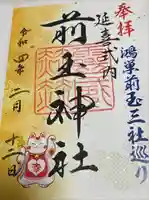 奉拝
鴻巣前玉三社巡り
延喜式内
前玉神社
令和四年二月
十二日